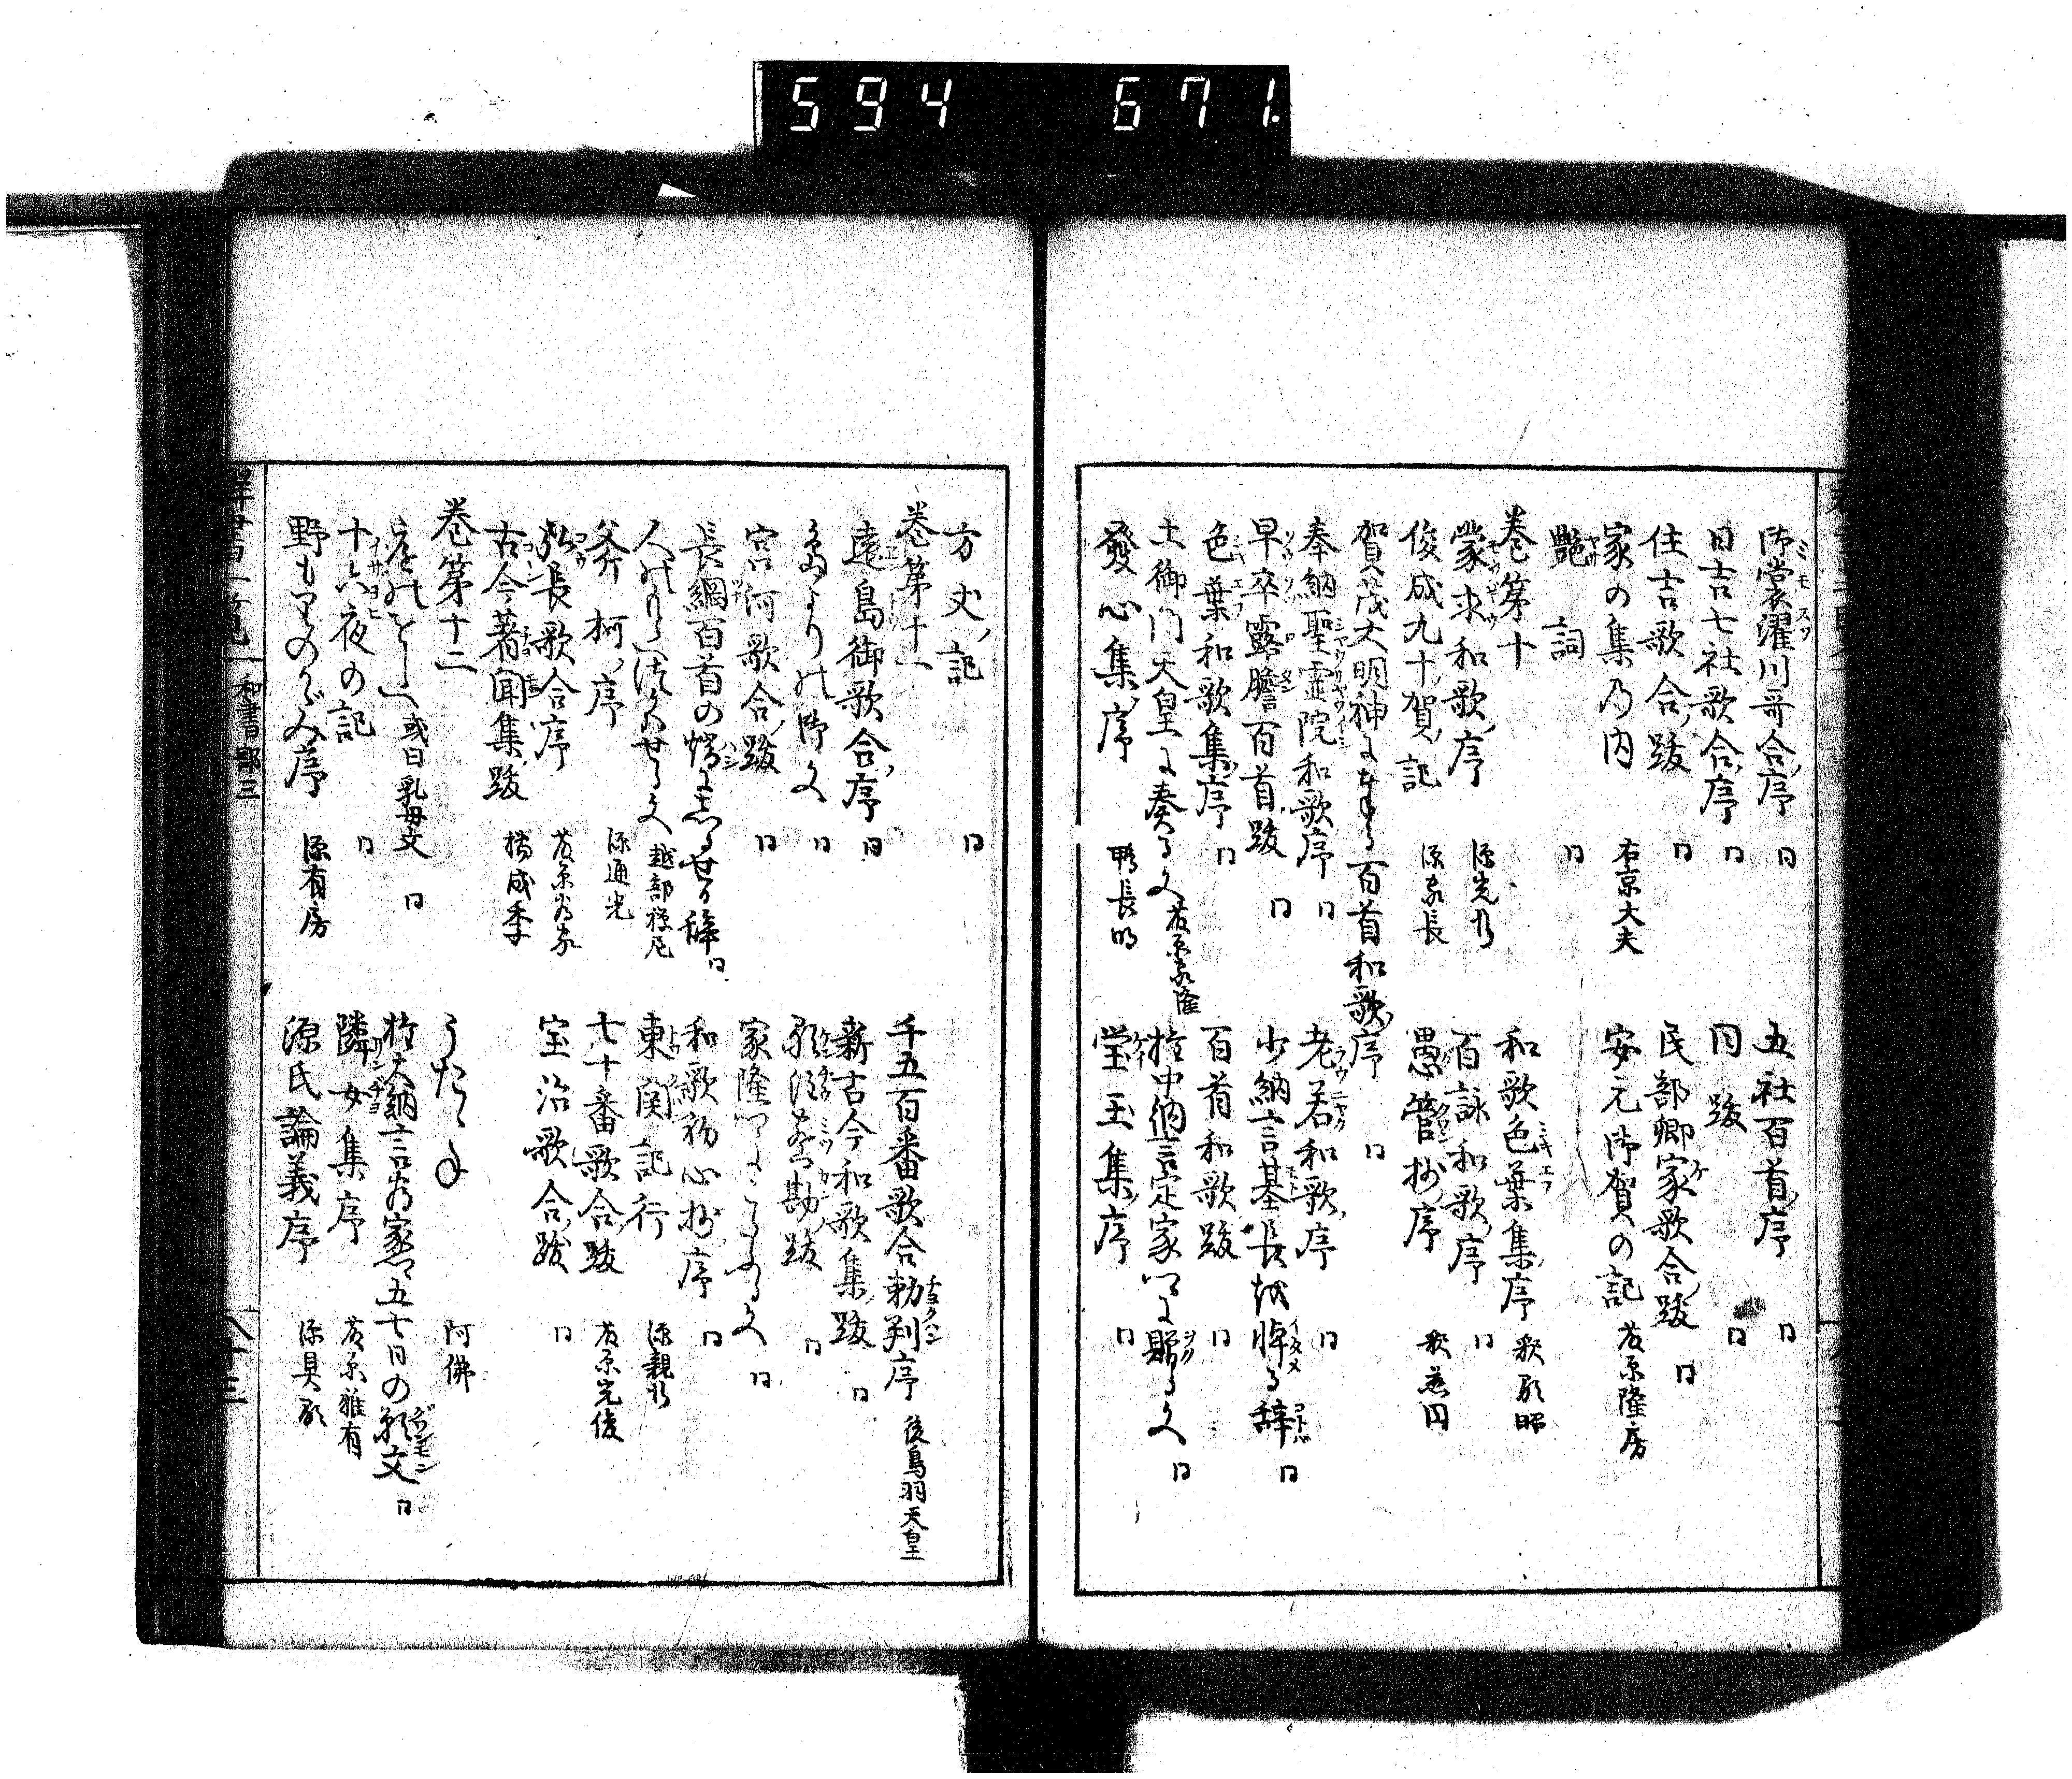 594 671.
御裳濯川哥合序 同 五社百首序 同
日吉七社歌合序 同 同 跋 同
住吉歌合跋 同 民部卿家歌合跋 同
家の集乃内 右京大夫 安元御賀の記 藤原隆房
艶詞 同
巻第十 和歌色葉集序 釈顕昭
蒙求和歌序 源光行 百詠和歌序 同
俊成九十賀記 源家長 愚管抄序 釈慈円
賀茂大明神に奉る百首和歌序 同
奉納聖霊院和歌序 同 老若和歌序 同
早卒露膽百首跋 同 少納言基長を悼る辞 同
色葉和歌集序 同 百首和歌跋 同
土御門天皇に奏る文 藤原家隆 権中納言定家卿に贈る文 同
發心集序 鴨長明 瑩玉集序 同
方丈記 同
巻第十一 千五百番歌合勅判序 後鳥羽天皇
遠島御歌合序 同 新古今和歌集跋 同
島よりの御文 同 顕注密勘跋 同
宮河歌合跋 同 家隆卿にこたふる文 同
長綱百首の端にしるせる辞 同 和歌初心抄序 同
越部禅尼 東関記行 源親行
斧柯序 源通光 七十番歌合跋 藤原光俊
弘長歌合序 藤原為家 宝治歌合跋 同
古今著聞集跋 橘成季
巻第十二 うたゝね 阿佛
庭のをしへ 或曰乳母文 同 権大納言為家卿五七日の願文 同
十六夜の記 同 隣女集序 藤原雅有
野もりのかゞみ序 源有房 源氏論義序 源具顕
群書一覧 和書部三 八十三